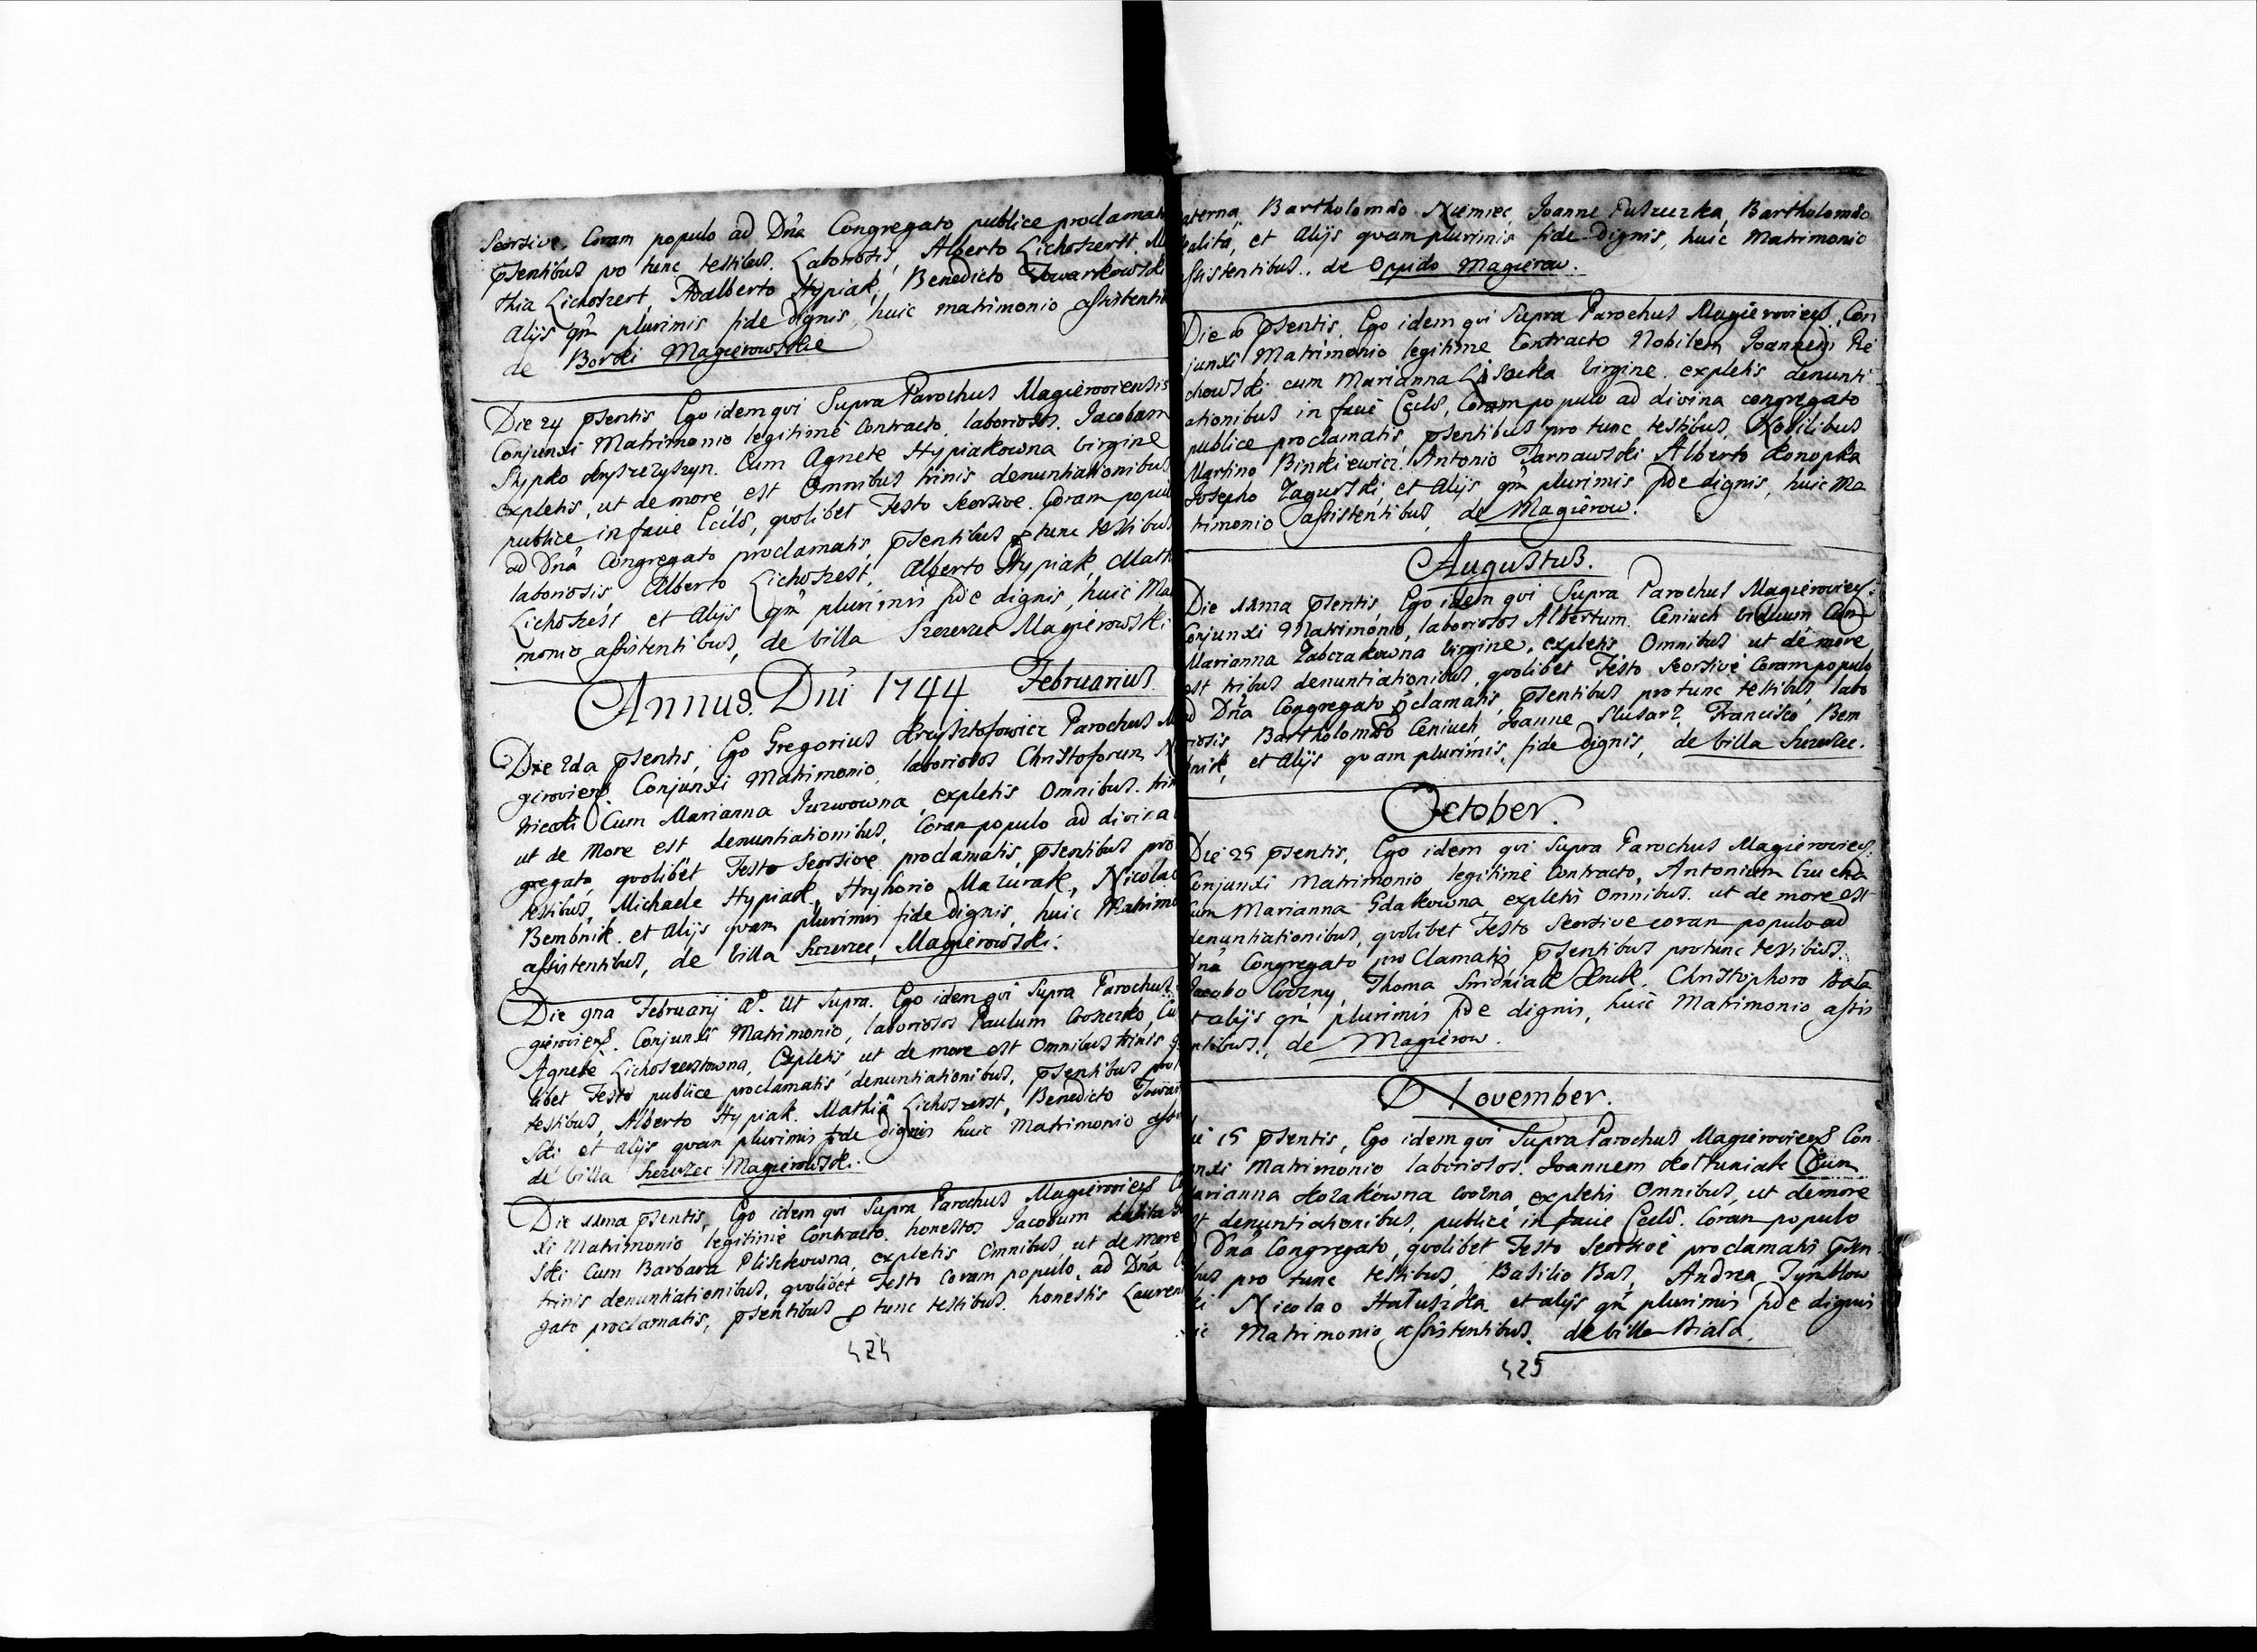 Seorsive. Coram populo ad Dnã Congregato publice proclamat
psentibus pro tunc testibus. Laboriosis, Alberto Lichoszerst M
thia Lichoszert, Adalberto Hypiak, Benedicto Towarkowski
Alijs qm̃ plurimis fide dignis, huic matrimonio assistenti
de Borki Magierowskie
Die 24 psentis Ego idem qui Supra Parochus Magieroviensis
Conjunxi Matrimonio legitimè Contracto, laboriosos. Jacobum
Skypko Cum Agnete Hypiakowna Virgine
expletis, ut de more est Omnibus trinis denuntiationibus
publice in facie Ecclã, quolibet Festo Seorsive. Coram popu
ad Dnã Congregato proclamatis, psentibus p tunc testibus
laboriosis Alberto Lichoszest, Alberto Hypiak, Math
Lichoszest et Alijs qm̃ plurimis fide dignis, huic Ma
monio assistentibus, de Villa Szczerzec Magierowski
Annus Dni 1744 Februarius
Die 2da psentis, Ego Gregorius Krzysztofowicz Parochus M
giroviens. Conjunxi Matrimonio, laboriosos Christoforum N
Cum Marianna Jurwowna, expletis Omnibus. trin
ut de More est denuntiationibus, Coram populo ad divina
gregato, quolibet Festo Seorsive proclamatis, psentibus pro
testibus, Michaele Hypiak, Hryhorio Mazurak, Nicolao
Bembnik. et Alijs quam plurimis fide dignis, huic Matrimo
assistentibus, de Villa Szczerzec, Magierowski.
Die 9na Februarij Aº. Ut Supra. Ego idem qui Supra Parochus
gieroviens. Conjunxi Matrimonio, laboriosos Paulum Woszczko, Cu
Agnete Lichoszerstowna, Expletis ut de more est Omnibus trinis q
libet Festo publice proclamatis denuntiationibus, psentibus pro
testibus, Alberto Hypiak. Mathiã Lichoszerst, Benedicto Towar
ski et Alijs quam plurimis fide dignis huic Matrimonio assi
de Villa Szczerzec Magierowski.
Die 11ma psentis, Ego idem qui Supra Parochus Magieroviens Co
xi Matrimonio legitimè Contracto. honestos Jacobum Kalita
ski Cum Barbara Pliszkowna, expletis Omnibus, ut de more
trinis denuntiationibus, quolibet Festo Coram populo, ad Dnã
gato proclamatis, psentibus p tunc testibus. honestis Lauren
424
aterna, Bartholomæo Niemiec, Joanne Puszczka, Bartholomæo
alita, et Alijs quam plurimis fide dignis, huic Matrimonio
ssistentibus., de Oppido Magierow.
Die 6 psentis, Ego idem qui Supra Parochus Magieroviens, Con
junxi Matrimonio legitime Contracto Nobilem Joannem Ré
chowski cum Marianna Lisocka Virgine. expletis denunti
ationibus in facie Ecclã, Coram populo ad divina congregato
publice proclamatis, psentibus pro tunc testibus, Nobilibus
Martino Binkiewicz, Antonio Tarnawski Alberto Konopka
Josepho Zagurski, et Alijs qm̃ plurimis fide dignis, huic Ma
trimonio assistentibus, de Magierow.
Augustus.
Die 11ma psentis, Ego idem qui Supra Parochus Magieroviens.
Conjunxi Matrimonio, laboriosos Albertum. Ceniuch Viduum Cum
Marianna Zabczakowna Virgine, expletis Omnibus ut de more
est tribus denuntiationibus, quolibet Festo Seorsive Coram populo
ad Dnã Congregato pclamatis, psentibus pro tunc testibus, labo
riosis Bartholomæo Ceniuch, Joanne Slusarz, Francisco Bem
bnik, et Alijs quam plurimis, fide dignis, de Villa Szczerzec.
October.
Die 25 psentis, Ego idem qui Supra Parochus Magieroviens.
Conjunxi Matrimonio legitimè Contracto, Antonium
Cum Marianna Gdakowna expletis Omnibus. ut de more est
denuntiationibus, quolibet Festo Seorsive coram populo ad
Dnã Congregato pro Clamatis, psentibus pro tunc testibus.
Jacobo Woźny, Thoma Christophoro Bala
t alijs qm̃ plurimis fide dignis, huic Matrimonio assis
ntibus., de Magierow.
November.
ie 15 psentis, Ego idem qui Supra Parochus Magieroviens Con
nxi Matrimonio laboriosos. Joannem Kołtuniak Cum
arianna Kozakowna expletis Omnibus, ut de more
st denuntiationibus, publicè in facie Ecclã. Coram populo
d Dnã Congregato, quolibet Festo Seorsivè proclamatis psen
bus pro tunc testibus, Basilio Bas, Andrea Tymkow
ki Nicolao Hałuszka et alijs qm̃ plurimis fide dignis
ic Matrimonio assistentibus. de Villa Biała.
425